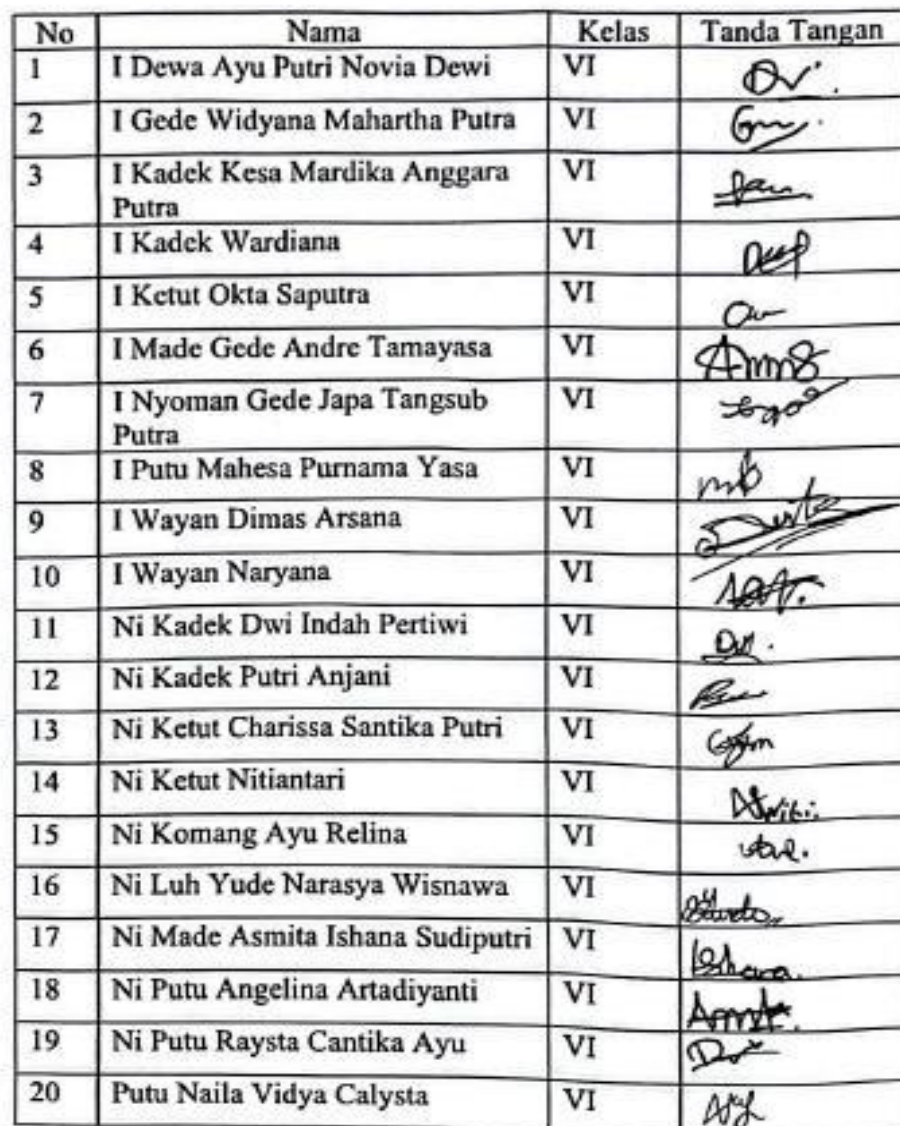 No Nama Kelas Tanda Tangan
1 I Dewa Ayu Putri Novia Dewi VI
2 I Gede Widyana Mahartha Putra VI
3 I Kadek Kesa Mardika Anggara VI
Putra
4 I Kadek Wardiana VI
5 I Ketut Okta Saputra VI
6 I Made Gede Andre Tamayasa VI
7 I Nyoman Gede Japa Tangsub VI
Putra
8 I Putu Mahesa Purnama Yasa VI
9 I Wayan Dimas Arsana VI
10 I Wayan Naryana VI
11 Ni Kadek Dwi Indah Pertiwi VI
12 Ni Kadek Putri Anjani VI
13 Ni Ketut Charissa Santika Putri VI
14 Ni Ketut Nitiantari VI
15 Ni Komang Ayu Relina VI
16 Ni Luh Yude Narasya Wisnawa VI
17 Ni Made Asmita Ishana Sudiputri VI Ishana.
18 Ni Putu Angelina Artadiyanti VI
19 Ni Putu Raysta Cantika Ayu VI
20 Putu Naila Vidya Calysta VI